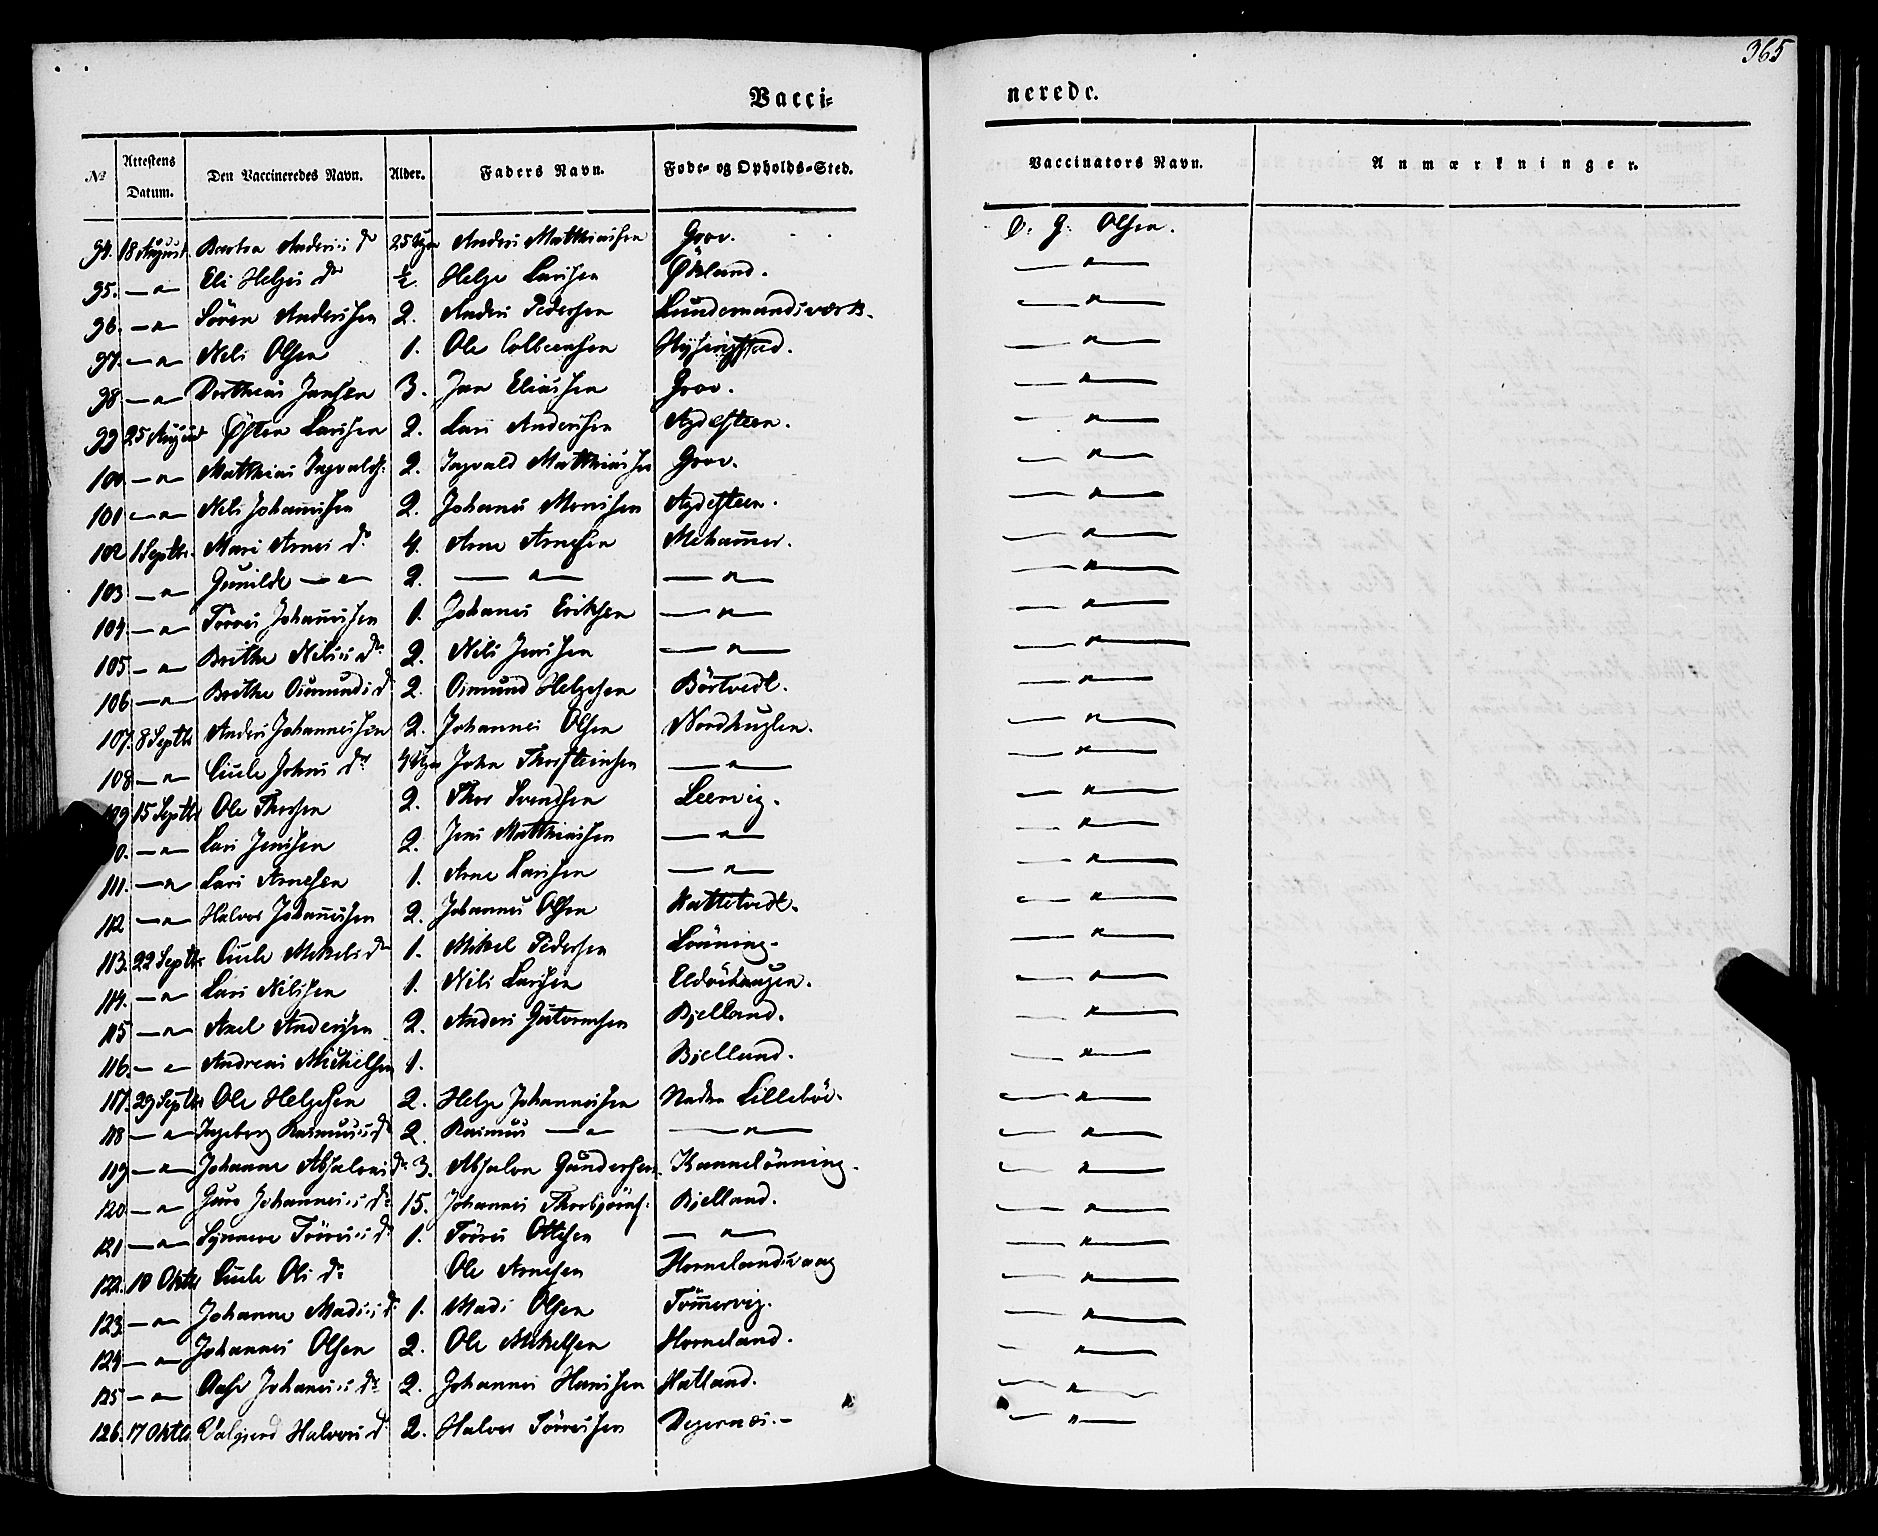 365
Vaccinerede.
№ Attestens Datum. Den Vaccineredes Navn. Alder. Faders Navn. Føde- og Opholds-Sted. Vaccinators Navn. Anmærkninger.
94. 18 August Anders d. 25 Uger Anders Matthiassen Grov. O. G. Olsen.
95. — " — Eli Helges dr ½. Helge Larssen Økland. — " —
96. — " — Sören Anderssen 2. Anders Pedersen — " —
97. — " — Nels Olsen 1. Ole — " —
98. — " — Jansen 3. Jan Eliassen Grov. — " —
99 25 August Østen Larssen 2. Lars Anderssen Agdesteen. — " —
100 — " — Matthias Ingvalds. 2. Ingvald Matthiassen Grov. — " —
101 — " — Nels Johannssen 2. Johanes Monssen Agdesteen. — " —
102 1 Septbr. Mari Arnes dr 4. Arne Arnesen Mehammer. — " —
103 — " — Gunilde — " — 2. — " — — " — — " —
104 — " — Johannessen 1. Johanes Eriksen — " — — " —
105 — " — Brithe Nelses dr 2. Nels Jenssen — " — — " —
106 — " — Brithe Osmunds d. 2. Osmund Helgesen Börtvedt. — " —
107. 8 Septbr Anders Johannessen 2. Johannes Olsen Nordhuglen. — " —
108 — " — Johns dr Uger John Thorsteinsen — " — — " —
109 15 Septbr Ole Thorsen 2. Thor Svendsen Leervig. — " —
0. — " — Lars Jenssen 2. Jens Matthiassen — " — — " —
111. — " — Lars Arnesen 1. Arne Larssen — " — — " —
112 — " — Halvor Johannessen 2. Johannes Olsen Hattetvedt. — " —
113. 22 Septbr Mikels dr 1. Mikel Pedersen Lönning. — " —
114. — " — Lars Nilssen 1. Nils Larssen Eldöehaugen. — " —
115 — " — Axel Anderssen 2. Anders Gutormsen Bjelland. — " —
116. — " — Andreas Michelsen 1. Bjelland. — " —
117. 29 Septbr Ole Helgesen 2. Helge Johannessen Nedre Lilleböe. — " —
118 — " — Ingeborg Rasmuses dr 2. Rasmus — " — — " — — " —
119 — " — Johanne Absalons dr 3. Absalon Gundersen Kannelönning. — " —
120 — " — Guro Johanneses dr 15. Johannes Thorbjörns. Bjelland. — " —
121 — " — Synneve Törreses dr 1. Törres Ottesen — " — — " —
122. 10 Oktbr Ols dr Ole Arnesen Hornelandsvaag — " —
123 — " — Johanne Madses d. 1. Mads Olsen Tömmervig. — " —
124 — " — Johannes Olsen 2. Ole Mikelsen Horneland. — " —
125 — " — Johaneses dr 2. Johannes Hanssen Hatland. — " —
126. 17 Oktbr Valgierd Halvors d 2. Halvor Törressen Degernæs. — " —